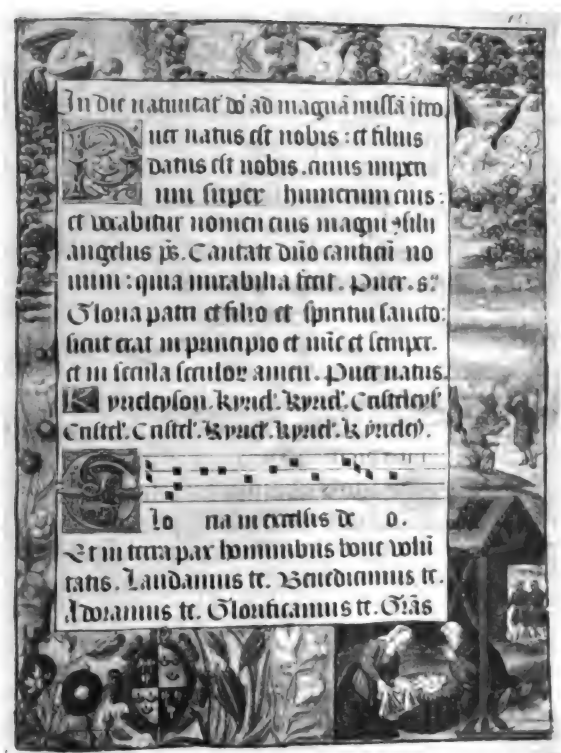 In die natiuitat̃ dõ ad magnã missã ĩtro.
Puer natus est nobis : et filius
datus est nobis . cuius imperi
um super humerum eius :
et vocabitur nomen eius magni ↄsilii
angelus . ps̃ . Cantate dño canticũ no
uum : quia mirabilia fecit . Puer . s̃.
Gloria patri et filio et spiritui sancto :
sicut erat in principio et nũc et semper .
et in secula seculoꝝ amen . Puer natus .
Kyrieleyson . kyriel̃ . kyriel̃ . Cristeleys̃
Cristel̃ . Cristel̃ . kyriel̃ . kyriel̃ . kyrieley̆ .
Glo ria in excelsis de o .
Et in terra pax hominibus bone volũ
tatis . Laudamus te . Benedicimus te .
Adoramus te . Glorificamus te . Grãs